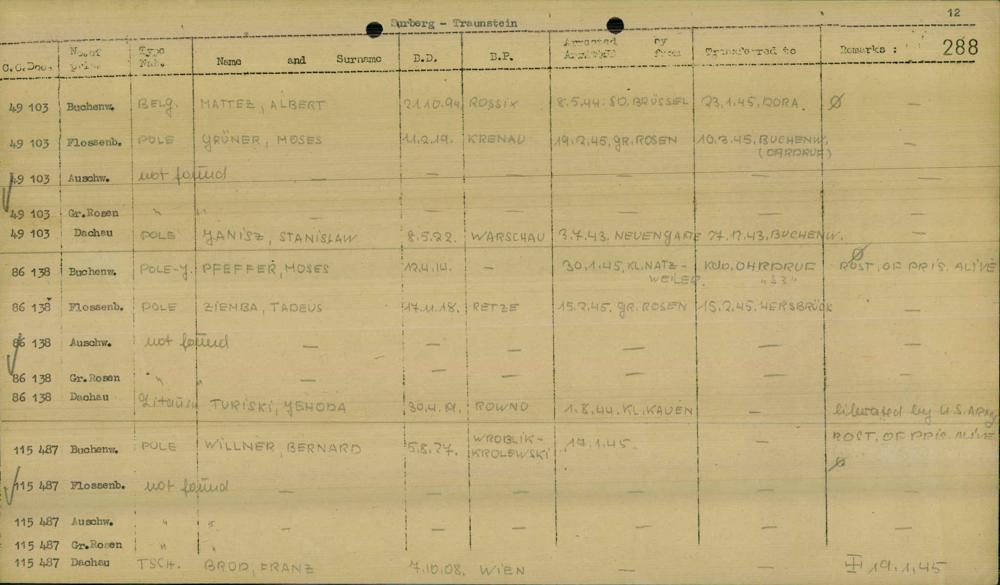 12
Surberg - Traunstein
288
C.C.Doc. No. of Type Nat. Name and Surname B.D. B.P. Arrested by Arrived from Transferred to Remarks : -
49 103 Buchenw. BELG. MATTEZ, ALBERT 21.10.94 ROSSIX 8.5.44. SD. BRÜSSEL 23.1.45, DORA. Ø -
49 103 Flossenb. POLE GRÜNER, MOSES 11.2.19. KRENAU 19.2.45, GR. ROSEN 10.3.45, BUCHENW. -
(OHRDRUF)
49 103 Auschw. not found - - - - -
49 103 Gr.Rosen " " - - - - -
49 103 Dachau POLE JANISZ, STANISŁAW 8.5.22. WARSCHAU 3.7.43. NEUENGAME 27.12.43, BUCHENW. -
86 138 Buchenw. POLE-J. PFEFFER, MOSES 12.4.14. - 30.1.45, KL. NATZ- Kdo. OHRDRUF Ø ROST. OF PRIS. ALIVE
WEILER. "S3"
86 138 Flossenb. POLE ZIEMBA, TADEUS 17.11.18. RETZE 15.2.45. GR. ROSEN 15.2.45. HERSBRÜCK -
86 138 Auschw. not found - - - - -
86 138 Gr.Rosen " " - - - - -
86 138 Dachau Litausu TURISKI, JEHODA 30.4.19. ROWNO 1.8.44. KL. KAUEN - liberated by U.S. Army
115 487 Buchenw. POLE WILLNER, BERNARD 5.8.27. WROBLIK- 19.1.45. - ROST. OF PRIS. ALIVE
KROLEWSKI Ø
115 487 Flossenb. not found - - - - -
115 487 Auschw. " " - - - - -
115 487 Gr.Rosen " "
115 487 Dachau TSCH. BROD, FRANZ 7.10.08. WIEN - - 19.1.45